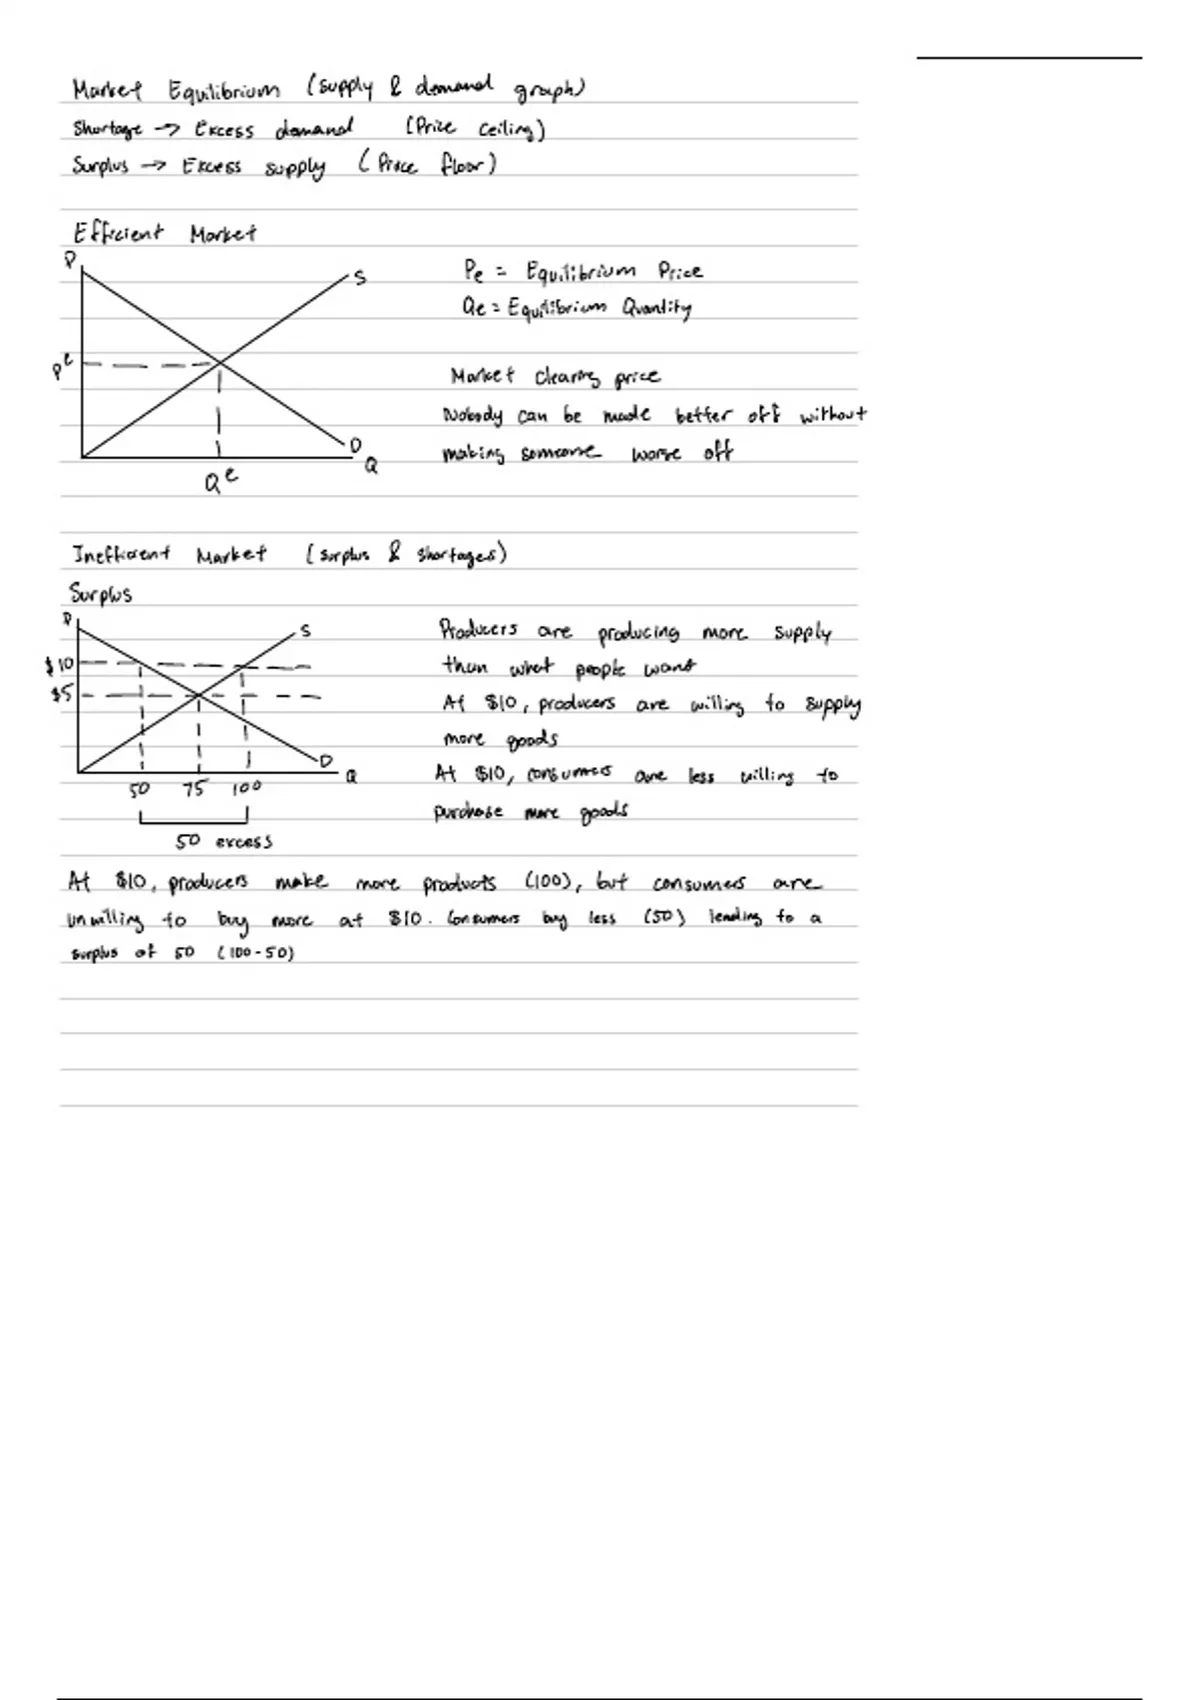 Market Equilibrium (supply & demand graph)
Shortage → Excess demand (Price Ceiling)
Surplus → Excess supply (Price floor)
Efficient Market
P
S
Pe = Equilibrium Price
Qe = Equilibrium Quantity
Pe
Market clearing price
Nobody can be made better off without
making someone worse off
D
Q
Qe
Inefficient Market (surplus & shortages)
Surplus
P
S
$10
$5
D
Q
50 75 100
50 excess
Producers are producing more supply
than what people want
At $10, producers are willing to supply
more goods
At $10, consumers are less willing to
purchase more goods
At $10, producers make more products (100), but consumers are
unwilling to buy more at $10. Consumers buy less (50) leading to a
surplus of 50 (100-50)